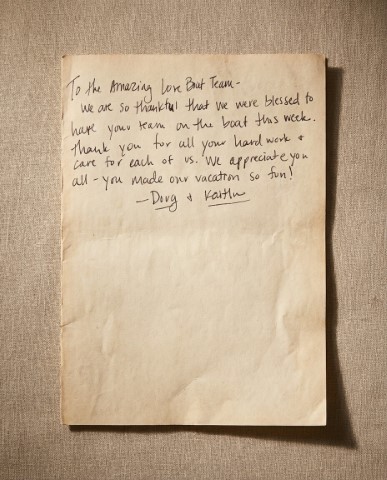 To the Amazing Love Boat Team-
We are so thankful that we were blessed to
have your team on the boat this week.
Thank you for all your hard work +
care for each of us. We appreciate you
all - you made our vacation so fun!
- Doug & Kaitlin